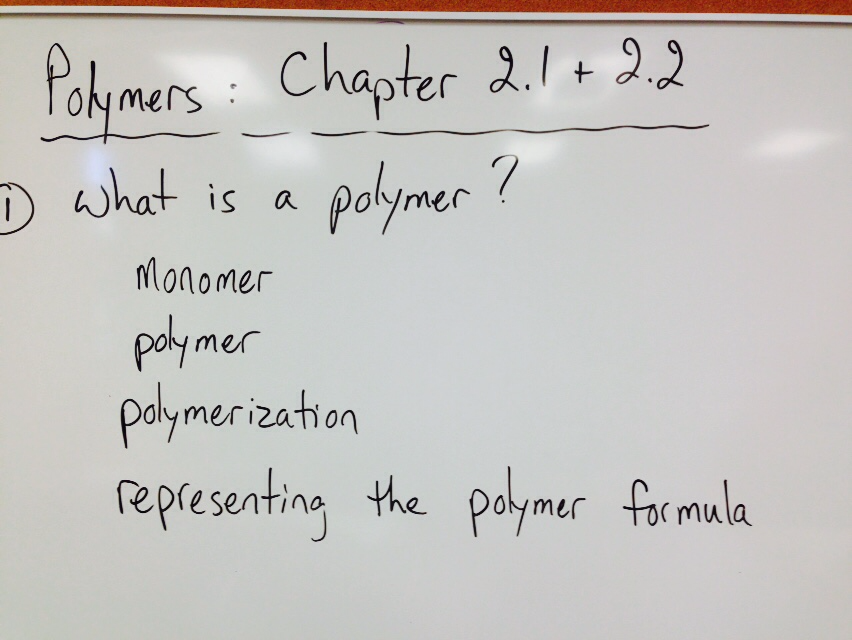 Polymers: Chapter 2.1 + 2.2
① What is a polymer?
Monomer
polymer
polymerization
representing the polymer formula